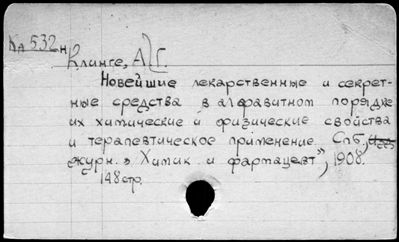 Кл 532 н
Клинге, А. Г.
Новейшие лекарственные и секрет-
ные средства в алфавитном порядке
их химические и физические свойства
и терапевтическое применение. Спб,
журн. "Химик и фармацевт", 1908.
148 стр.